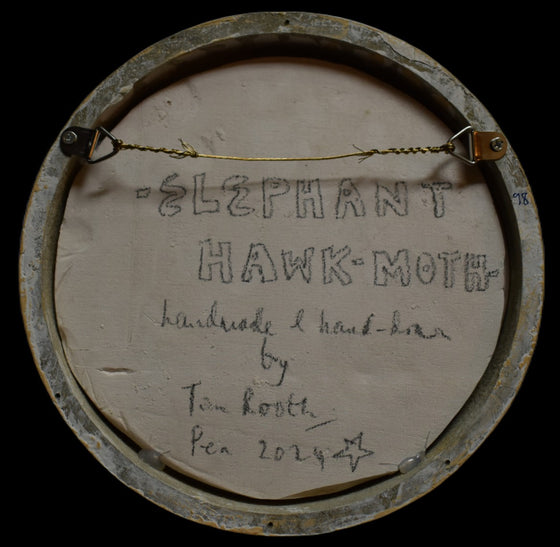 -ELEPHANT
HAWK-MOTH-
handmade & hand-drawn
by
Tim Rooth
Pen 2024
98